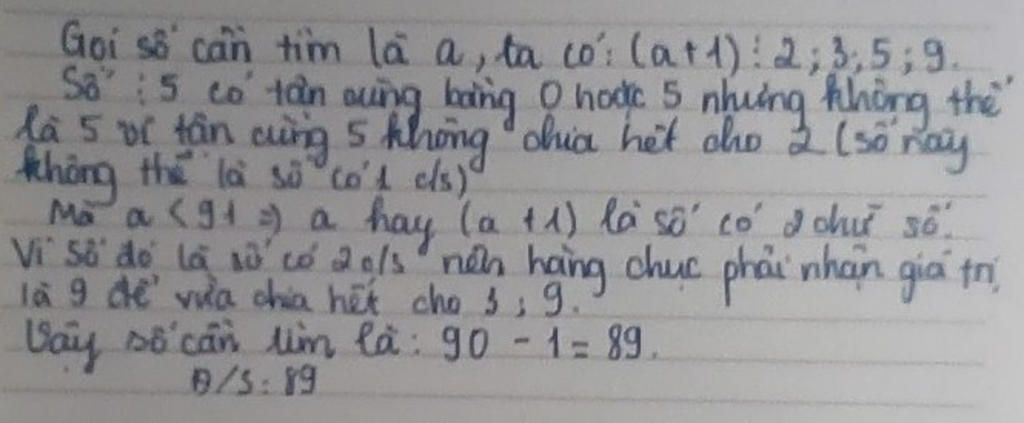 Gọi số cần tìm là a, ta có: (a+1) ⋮ 2; 3; 5; 9.
Số ⋮ 5 có tận cùng bằng 0 hoặc 5 nhưng không thể
là 5 vì tận cùng 5 không chia hết cho 2 (số này
không thể là số có 1 c/s)
Mà a < 91 => a hay (a + 1) là số có 2 chữ số.
Vì số đó là số có 2 c/s nên hàng chục phải nhận giá trị
là 9 để vừa chia hết cho 3; 9.
Vậy số cần tìm là: 90 - 1 = 89.
Đ/S: 89